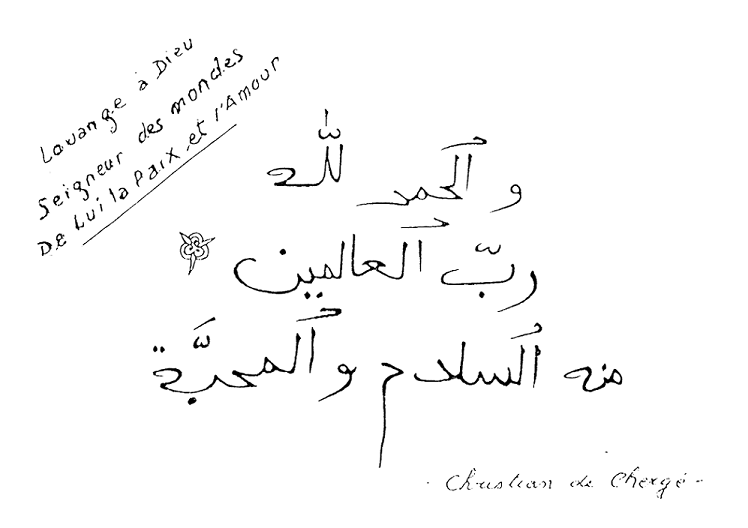 Louange à Dieu
Seigneur des mondes
De Lui la Paix et l'Amour
و ٱلحمد للّه
ربّ ٱلعالمين
منه ٱلسلام و ٱلمحبّة
- Christian de Chergé -